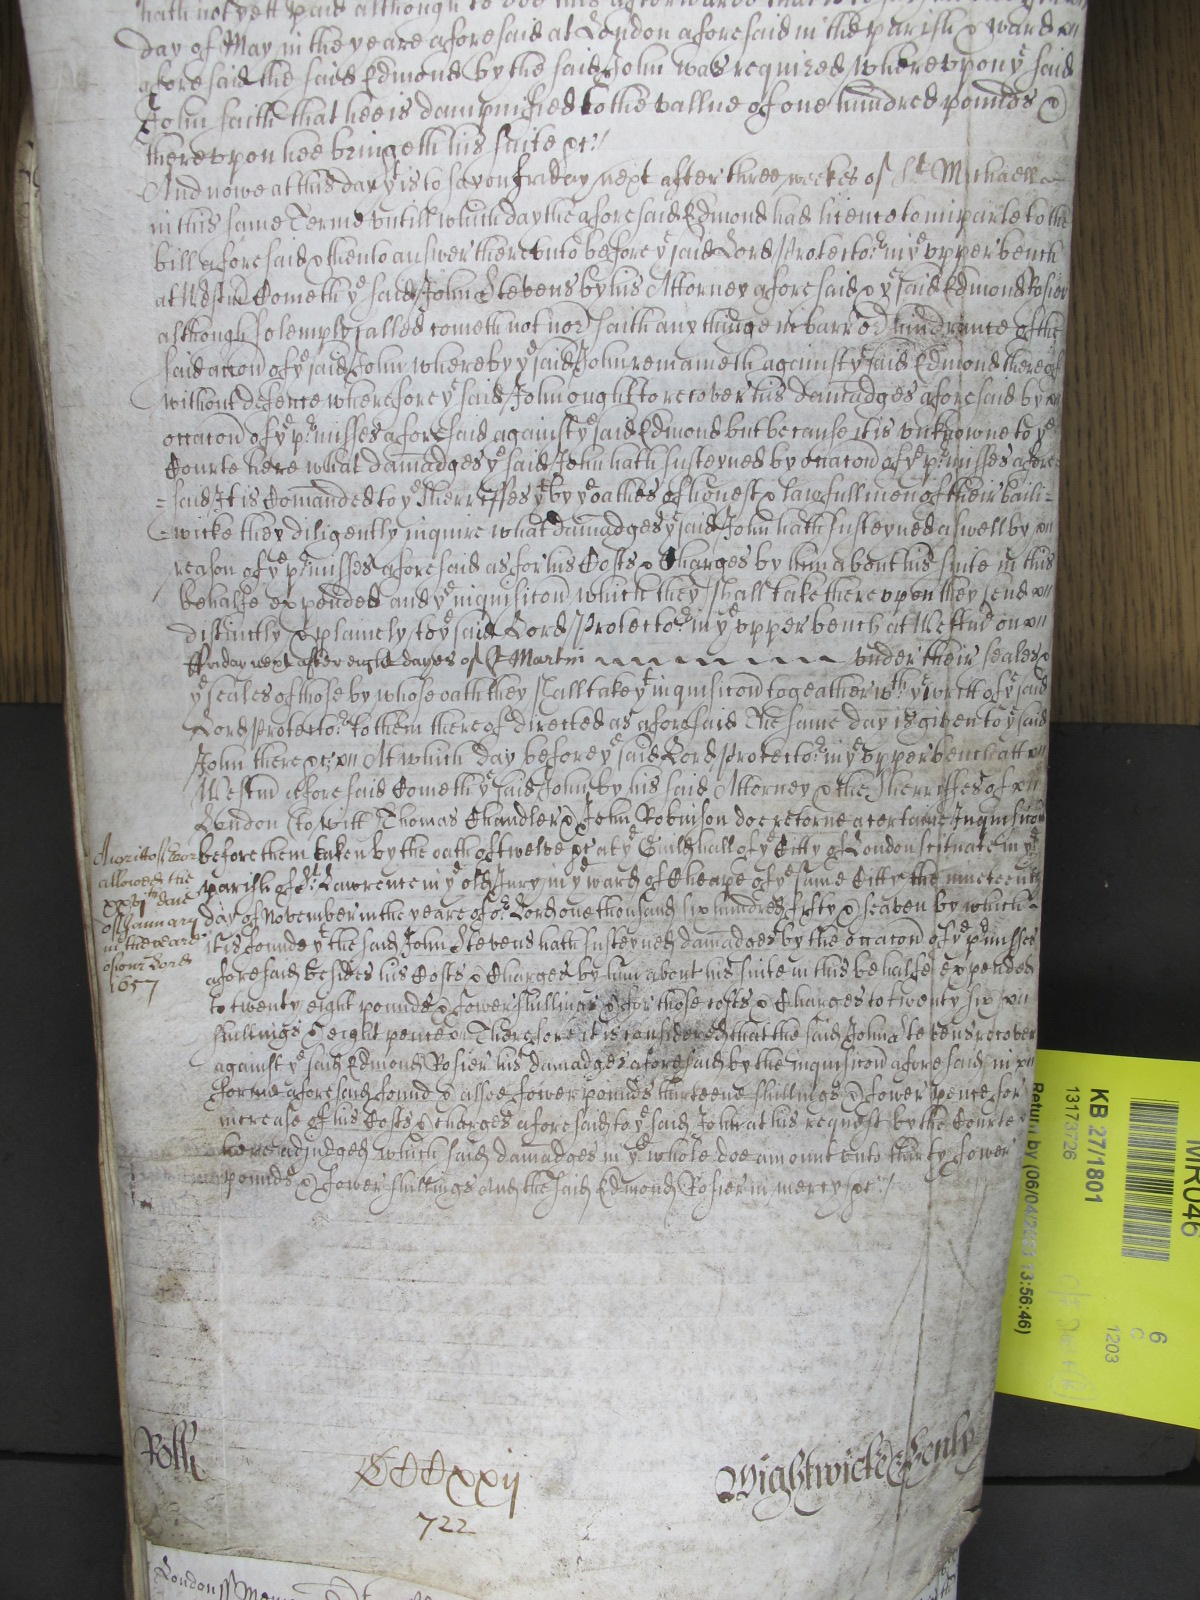 hath not yett paid although to doe this afterwards that is to say
day of May in the yeare aforesaid at London aforesaid in the parish & ward
aforesaid the said Edmond by the said John was required Wherevpon ye said
John saith that hee is dampnified to the vallue of one hundred pounds &
therevpon hee bringeth his suite &c:/
And nowe at this day yt is to say on Friday next after three weekes of St Michaell
in this same Terme vntill which day the aforesaid Edmond had licence to imparle to the
bill aforesaid & then to answer therevnto before ye said Lord Protector in ye vpper bench
at Westmr Cometh ye said John Stevens by his Attorney aforesaid & ye said Edmond Rosier
although solemply called cometh not nor saith any thinge in barr or hindrance of the
said accon of ye said John whereby ye said John remaineth against ye said Edmond thereof
without defence wherefore ye said John ought to recover his damadges aforesaid by
occacon of ye prmisses aforesaid against ye said Edmond but because it is vnknowne to ye
Courte here what damadges ye said John hath susteyned by occacon of ye prmisses afore=
=said It is Comanded to ye Sherriffes yt by ye oathes of honest & lawfull men of their baili=
=wicke they diligently inquire what damadges ye said John hath susteyned aswell by
reason of ye prmisses aforesaid as for his Costs & Charges by him about his suite in this
behalfe expended and ye inquisicon which they shall take therevpon they send
distinctly & plainely to ye said Lord Protector in ye vpper bench at Westmr on
Friday next after eight dayes of St Martin vnder their seales &
ye seales of those by whose oath they shall take yt inquisicon togeather wth ye writt of ye said
Lord Protector to them thereof directed as aforesaid The same day is given to ye said
John there &c: At which day before ye said Lord Protector in ye vpper bench att
Westmr aforesaid Cometh ye said John by his said Attorney & the Sherriffes of
London (to witt) Thomas Chandler & John Robinson doe retorne a certaine Inquisicon
before them taken by the oath of twelve &c at ye Guildhall of ye Citty of London scituate in ye
parish of St Lawrence in ye old Jury in ye ward of Cheape of ye same Citty the nineteenth
day of November in the yeare of or Lord one thousand six hundred fifty & seaven by which
it is founde yt the said John Stevens hath susteyned damadges by the occacon of ye prmisses
aforesaid besides his Costs & Charges by him about his suite in this behalfe expended
to twenty eight pounds & fower shillings & for those costs & Charges to twenty six
shillings & eight pence Therefore it is considered that the said John Stevens recover
against ye said Edmond Rosier his damadges aforesaid by the inquisicon aforesaid in
forme aforesaid found & alsoe fower pounds thirteene shillings & fower pence for
increase of his Costs & charges aforesaid to ye said John at his request by the Courte
here adjudged which said damadges in ye whole doe amount vnto thirty fower
pounds & fower shillings And the said Edmond Rosier in mercy &c:/
A writt of Error
allowed the
xxvjth daie
of January
in the yeare
of our Lord
1657
Roll
CCCxxij
Wightwicke & Henly
722
London ss
KB 27/1801
13173726
Return by (06/04/2 13:56:46)
MR046
6
C
1203